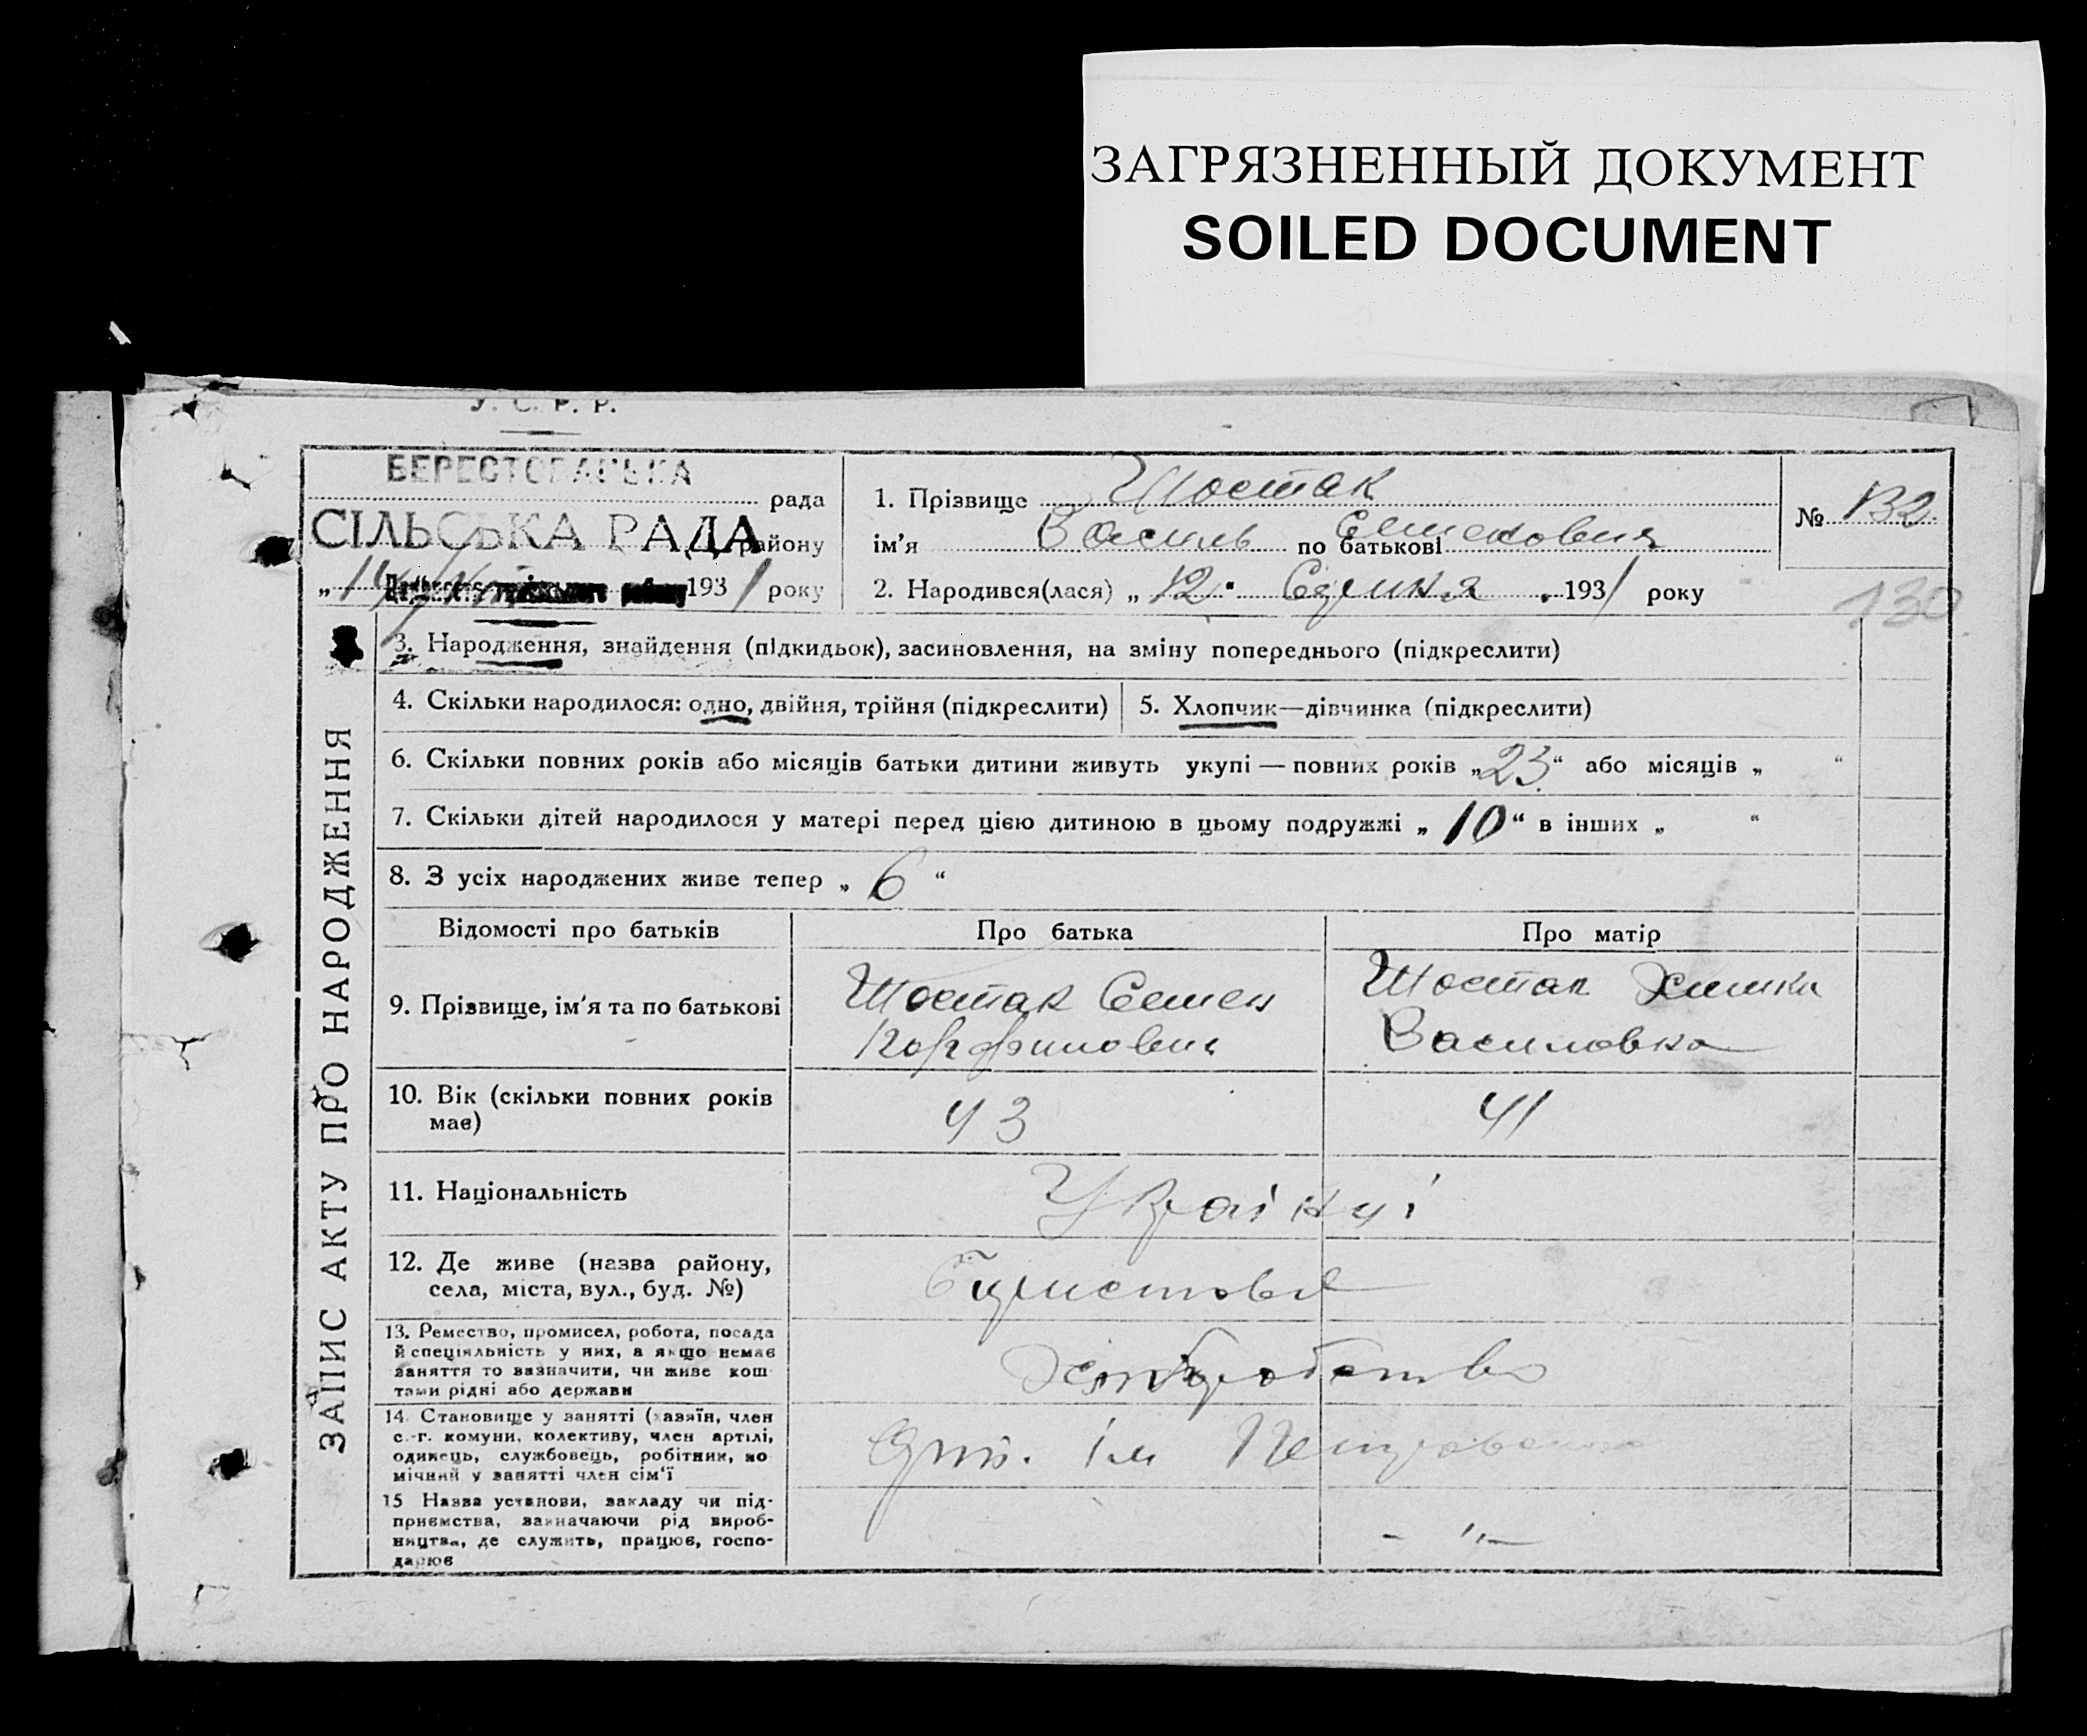 ЗАГРЯЗНЕННЫЙ ДОКУМЕНТ
SOILED DOCUMENT
У. С. Р. Р.
БЕРЕСТОВАНСЬКА
рада
СІЛЬСЬКА РАДА
району
1931 року
1. Прізвище Шостак
ім'я Василь по батькові Семенович
2. Народився(лася) „12" Серпня 1931 року
№ 132
130
ЗАПИС АКТУ ПРО НАРОДЖЕННЯ
3. Народження, знайдення (підкидьок), засиновлення, на зміну попереднього (підкреслити)
4. Скільки народилося: одно, двійня, трійня (підкреслити)
5. Хлопчик—дівчинка (підкреслити)
6. Скільки повних років або місяців батьки дитини живуть укупі — повних років „23" або місяців „ "
7. Скільки дітей народилося у матері перед цією дитиною в цьому подружжі „10" в інших „ "
8. З усіх народжених живе тепер „6"
Відомості про батьків
Про батька
Про матір
9. Прізвище, ім'я та по батькові
Шостак Семен
Шостак
Василовна
10. Вік (скільки повних років
має)
43
41
11. Національність
Українці
12. Де живе (назва району,
села, міста, вул., буд. №)
13. Ремество, промисел, робота, посада
й спеціяльність у них, а якщо немає
заняття то зазначити, чи живе кош
тами рідні або держави
14. Становище у занятті (хазяїн, член
с.-г. комуни, колективу, член артілі,
одинець, службовець, робітник, по
мічний у занятті член сім'ї
Арт. Ім Петровського
15 Назва установи, закладу чи під-
приємства, зазначаючи рід вироб-
ництва, де служить, працює, госпо-
дарює
- " -